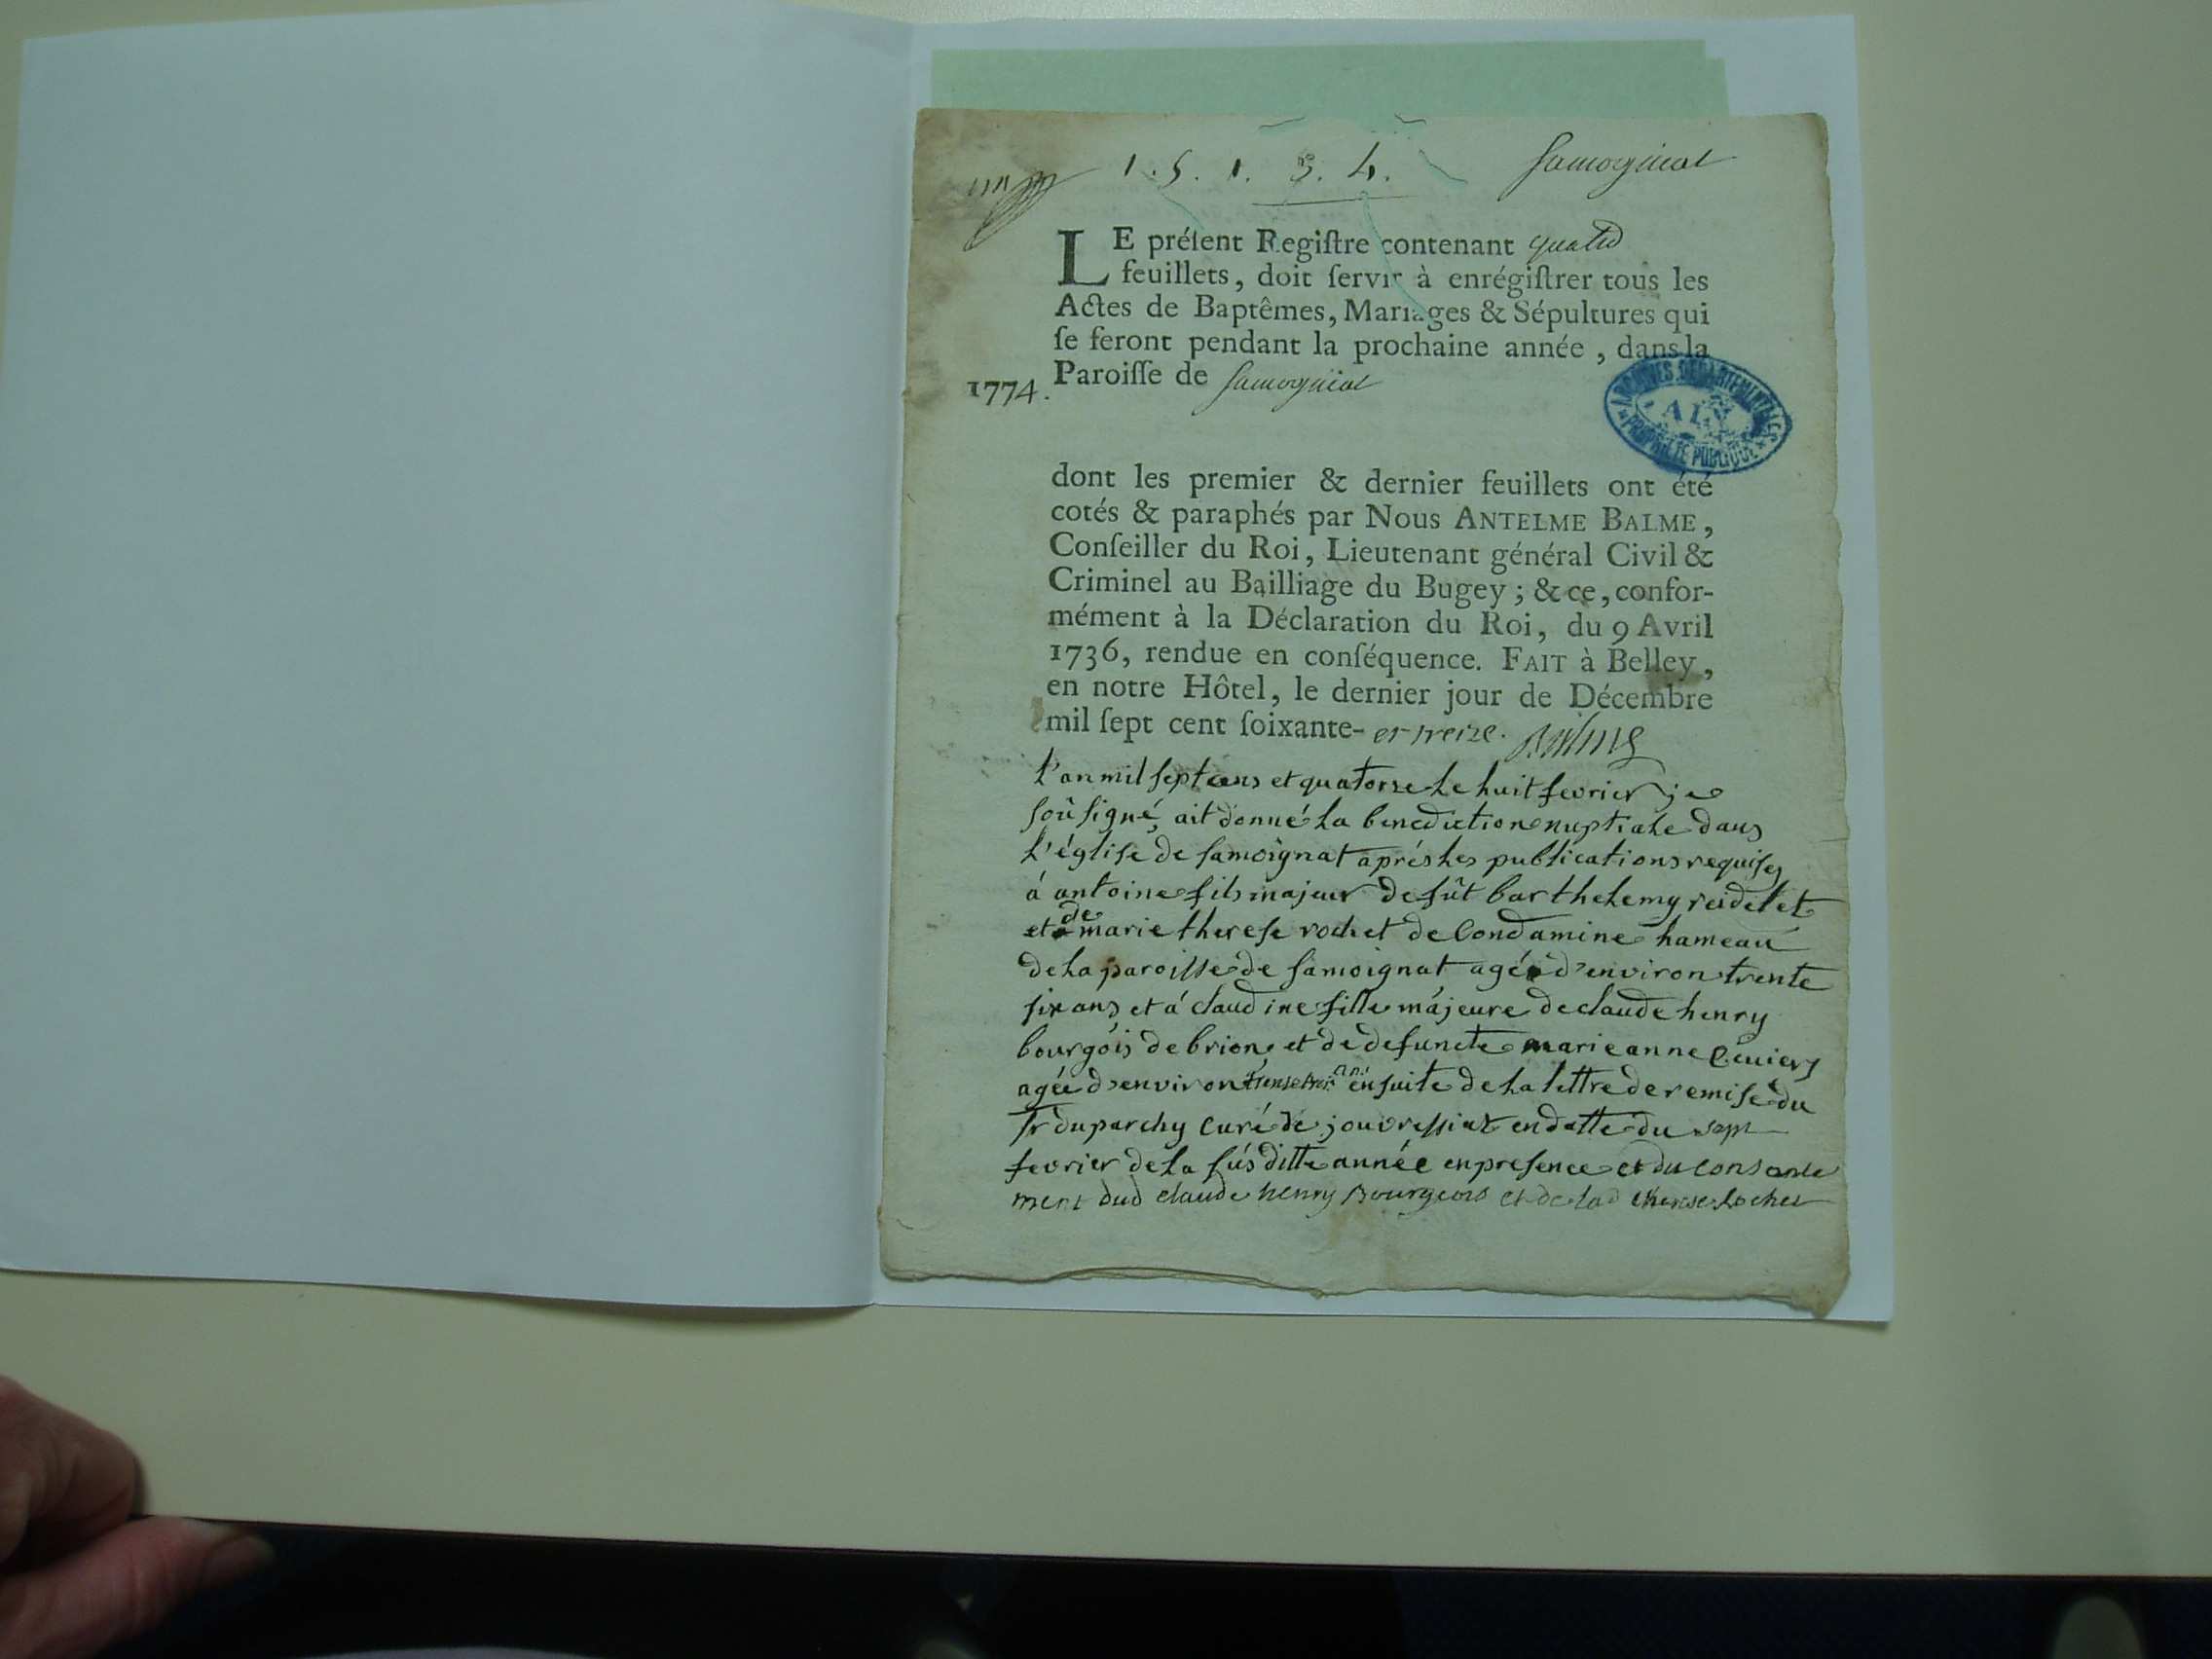 1. 5. 1. 3. 4. Samogniat
LE préſent Regiſtre contenant quatre
feuillets, doit ſervir à enrégiſtrer tous les
Actes de Baptêmes, Mariages & Sépultures qui
ſe feront pendant la prochaine année, dans la
1774. Paroiſſe de Samogniat
ARCHIVES DÉPARTEMENTALES
AIN
PROPRIÉTÉ PUBLIQUE
dont les premier & dernier feuillets ont été
cotés & paraphés par Nous ANTELME BALME,
Conſeiller du Roi, Lieutenant général Civil &
Criminel au Bailliage du Bugey; & ce, confor-
mément à la Déclaration du Roi, du 9 Avril
1736, rendue en conſéquence. FAIT à Belley,
en notre Hôtel, le dernier jour de Décembre
mil ſept cent ſoixante-et treize. Balme
L'an mil sept cens et quatorse le huit fevrier je
soûsigné ait donné la benediction nuptiale dans
l'église de samoignat aprés les publications requises
á antoine fils majeur de fût barthelemy reidelet
et de marie therese rochet de Condamine hameau
de la paroisse de samoignat agé d'environ trente
six ans et á claudine fille májeure de claude henry
bourgóis de brion et de defuncte marie anne
agée d'environ ans ensuite de la lettre de remise du
Sr duparchy curé de jouvressiat en datte du sept
fevrier de la súsditte année en presence et du consente
ment dud claude henry Bourgeois et de lad therese Rochet